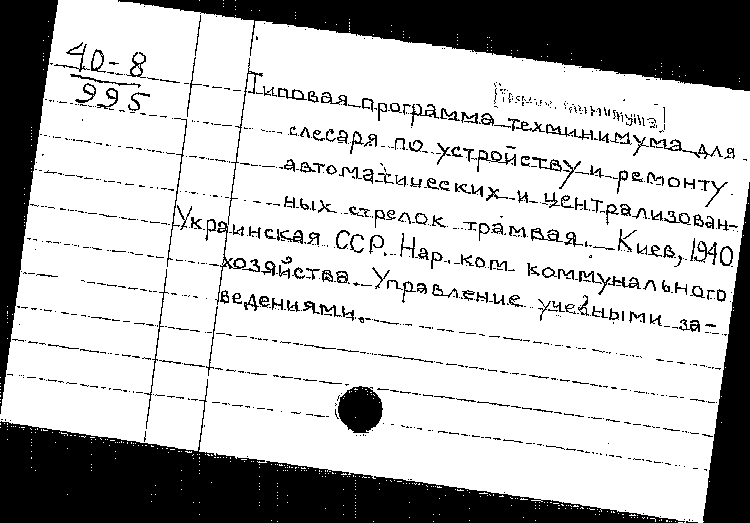 40-8
995
[технич. минимума]
Типовая программа техминимума для
слесаря по устройству и ремонту
автоматических и централизован-
ных стрелок трамвая. Киев, 1940
Украинская ССР. Нар. ком. коммунального
хозяйства. Управление учебными за-
ведениями.